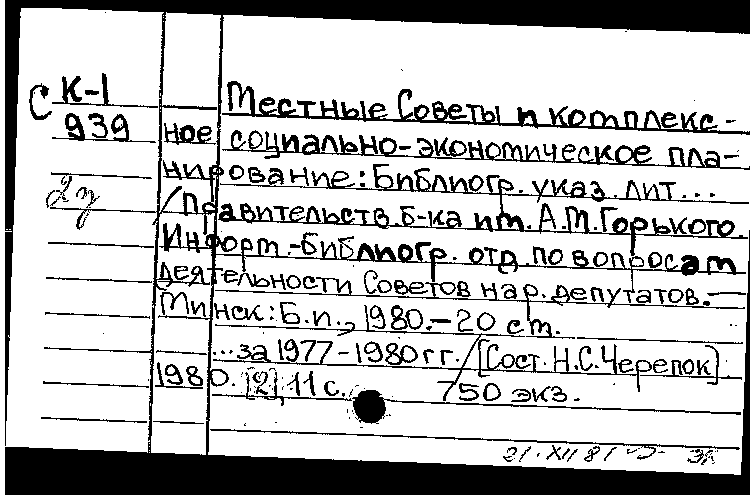 С К-1
939
2 у
Местные Советы и комплекс-
ное социально-экономическое пла-
нирование: Библиогр. указ. лит...
/Правительств. б-ка им. А.М.Горького.
Информ.-библиогр. отд. по вопросам
деятельности Советов нар. депутатов.-
Минск: Б.и., 1980.-20 см.
...за 1977-1980гг./[Сост. Н.С.Черепок].
1980. [2], 11 с. 750 экз.
21.XII 81